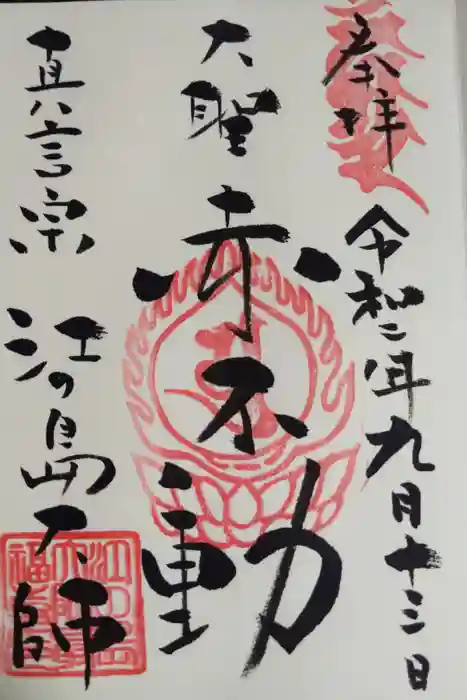 奉拝
令和二年九月十三日
大聖
赤不動
真言宗 江の島大師